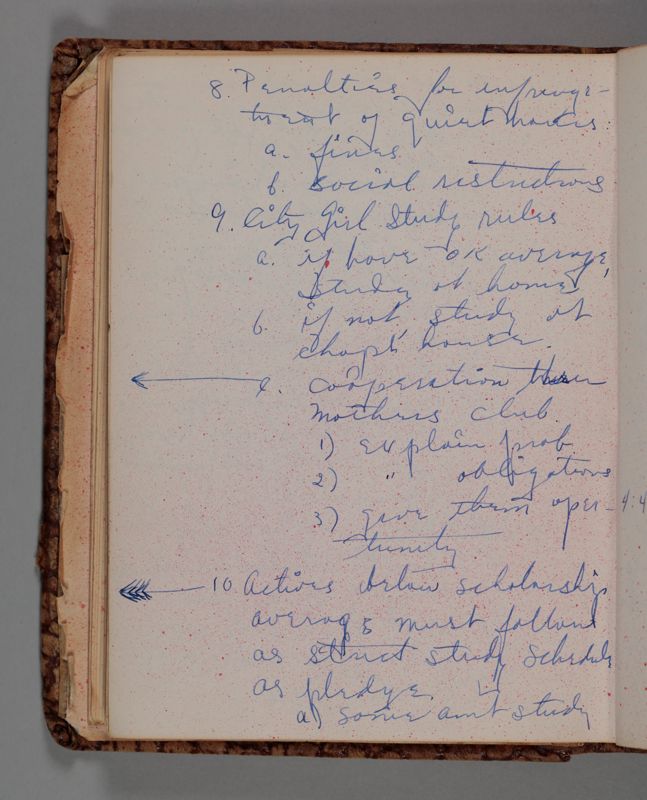 8. Penalties for infringe-
ment of quiet hours
a. fines
b. social restrictions
9. City girl study rules
a. if have OK average,
study at home
b. if not, study at
chapt. house.
c. cooperation thru
mothers club
1) explain prob
2) " obligations
3) give them oper-
tunity
4:4
10. Actives below scholarship
average must follow
as strict study schedule
as pledge.
a) some amt study